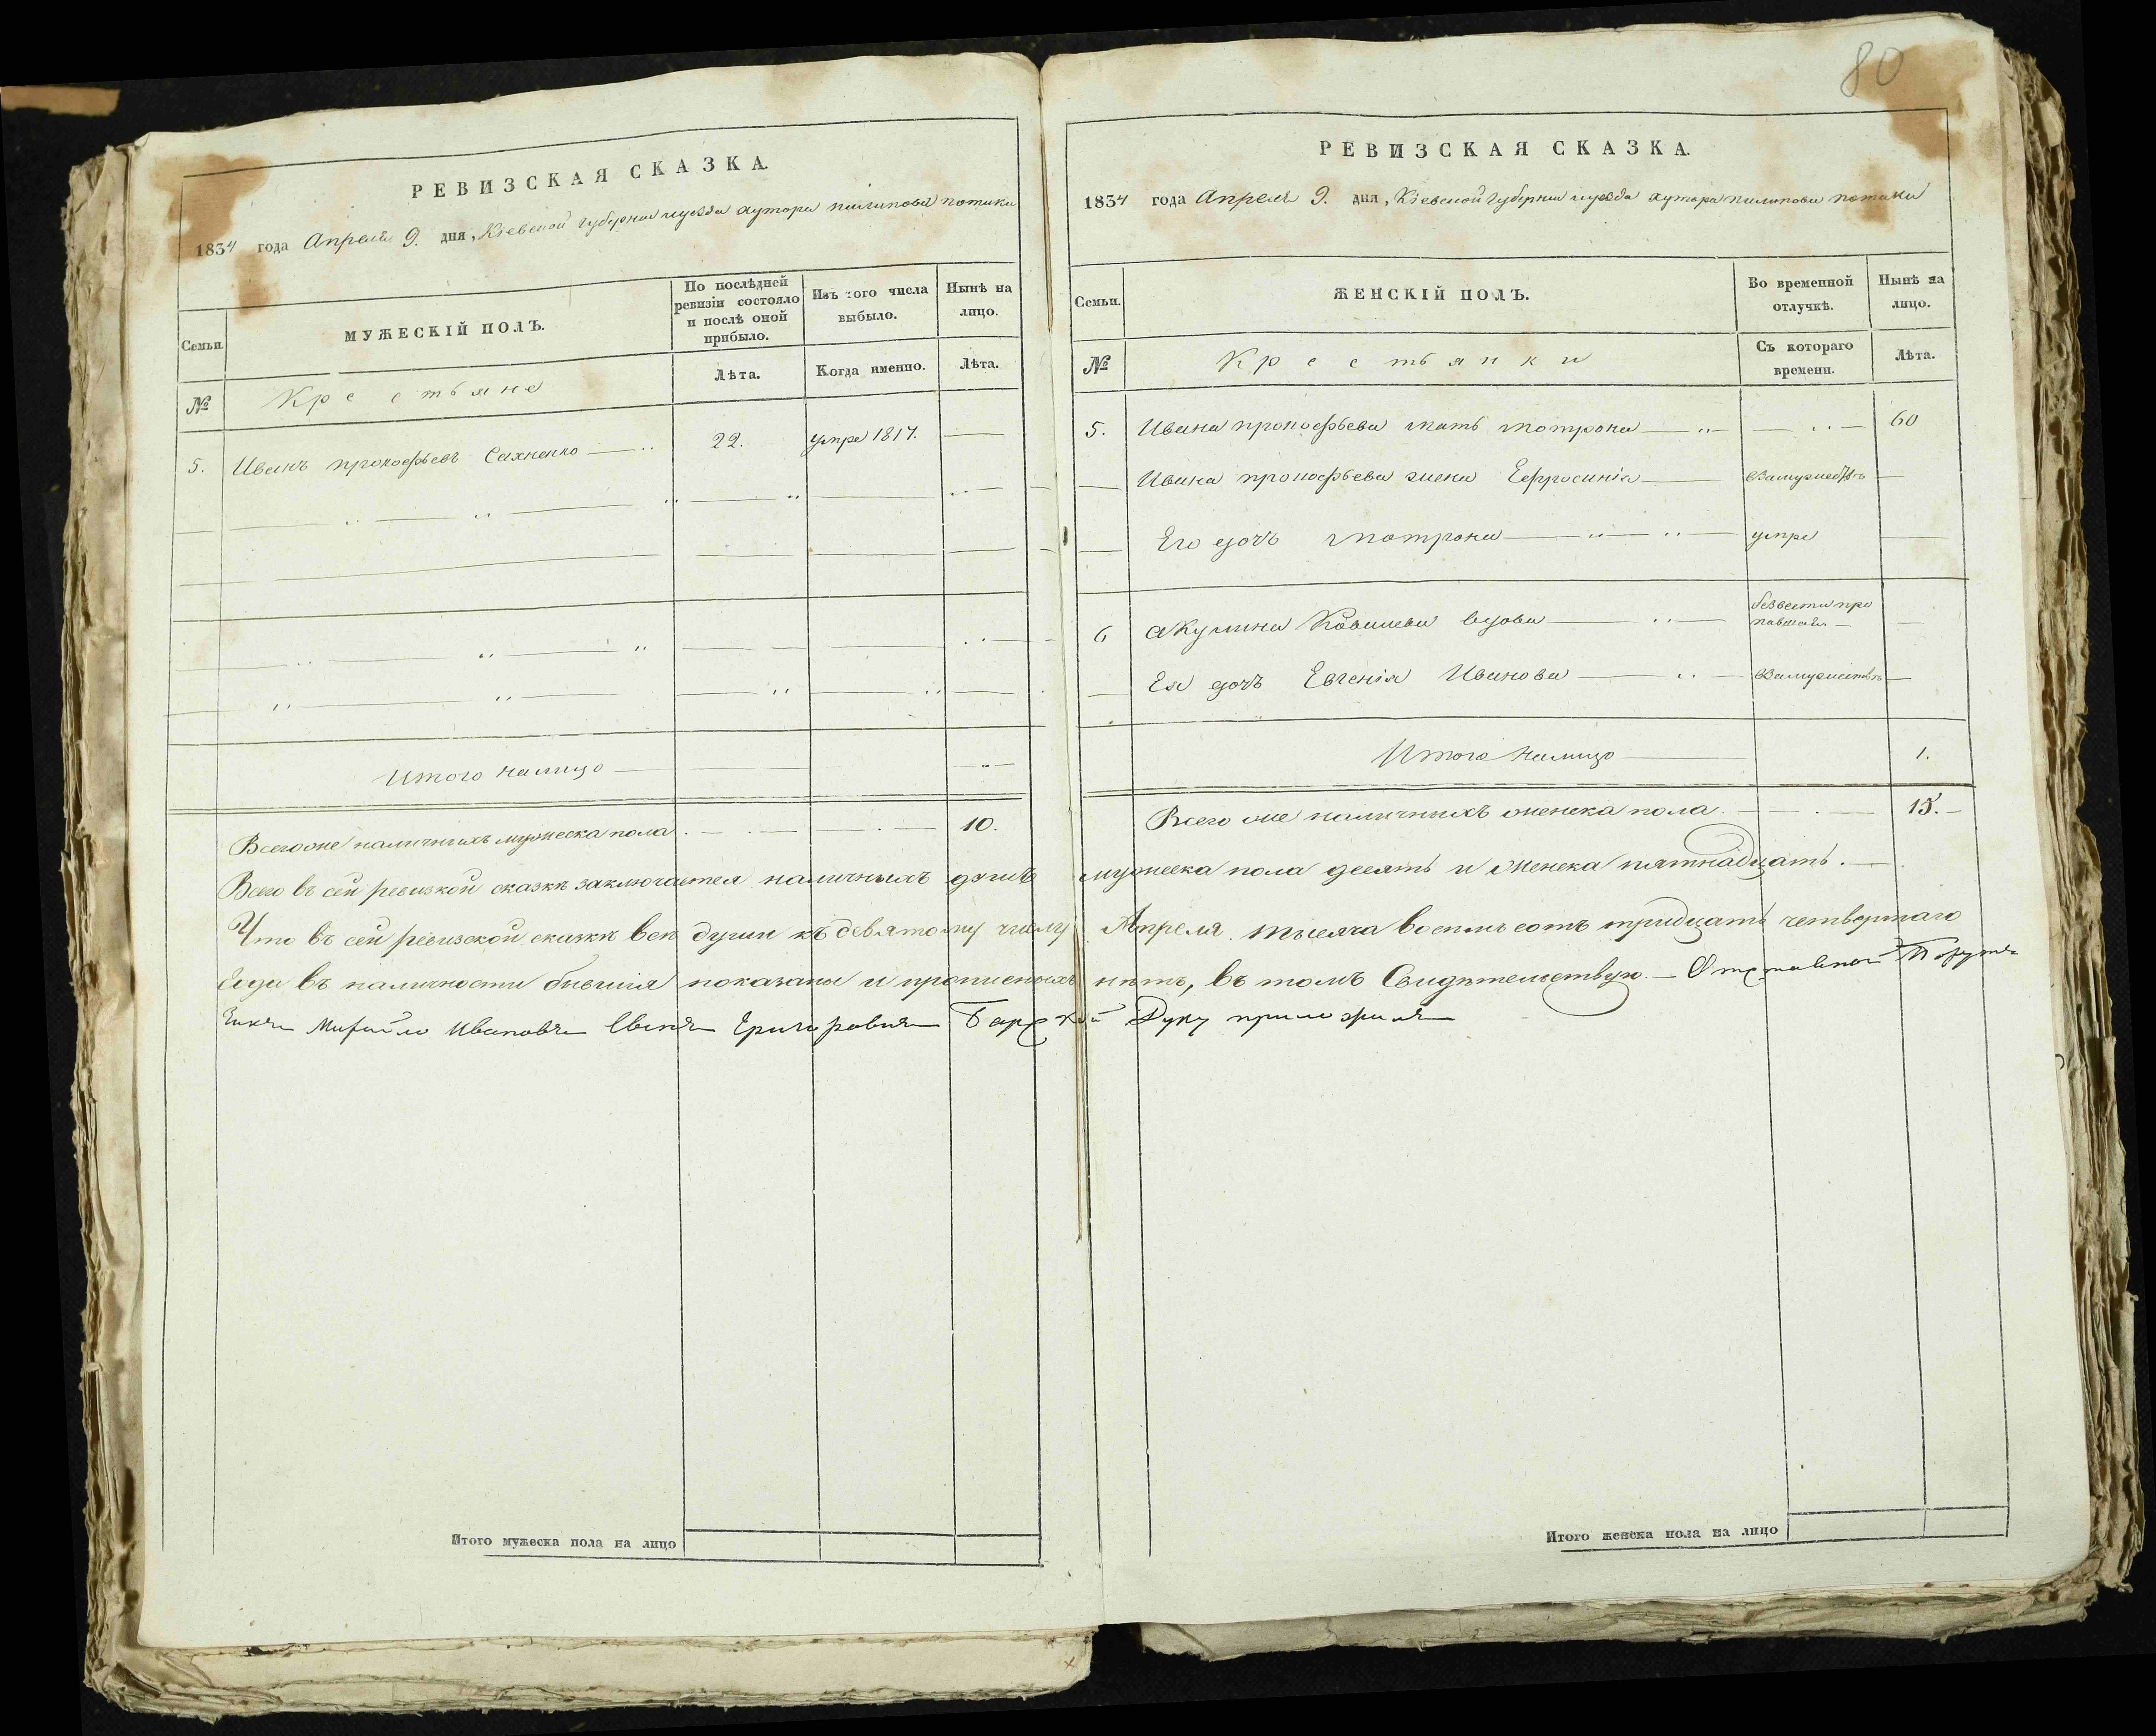 80
РЕВИЗСКАЯ СКАЗКА.
1834 года Апреля 9. дня, Кіевской губернии и уезда хутора пилипова потики
Семьи.
МУЖЕСКІЙ ПОЛЪ.
По послѣдней ревизіи состояло и послѣ оной прибыло.
Изъ того числа выбыло.
Нынѣ на лицо.
№
Крестьяне
Лѣта.
Когда именно.
Лѣта.
5. Иванъ прокофьевъ Сахненко 22. умре 1817.
Итого налицо
Всего же наличныхъ мужеска пола 10.
РЕВИЗСКАЯ СКАЗКА.
1834 года Апреля 9. дня, Кіевской губернии и уезда хутора пилипова потики
Семьи.
ЖЕНСКІЙ ПОЛЪ.
Во временной отлучкѣ.
Нынѣ на лицо.
№
Крестьянки
Съ котораго времени.
Лѣта.
5. Ивана прокофьева мать мотрона 60
Ивана прокофьева жена Ефросинія взамужествѣ
Его дочь мотрона умре
6 Акулина вдова безвести пропавшая
Ея дочь Евгенія Иванова взамужествѣ
Итого налицо 1.
Всего же наличныхъ женска пола 15.
Всего въ сей ревизкой сказкѣ заключается наличныхъ душъ мужеска пола десять и женска пятнадцать.
Что въ сей ревизской сказкѣ всѣ души къ девятому числу Апреля тысяча восемь сотъ тридцать четвертаго
года въ наличности бывшія показаны и прописныхъ нѣтъ, въ томъ Свидѣтельствую. Отставной Поручи
Михайло Ивановъ Сынъ Григоровичъ Барский Руку приложилъ
Итого мужеска пола на лицо
Итого женска пола на лицо